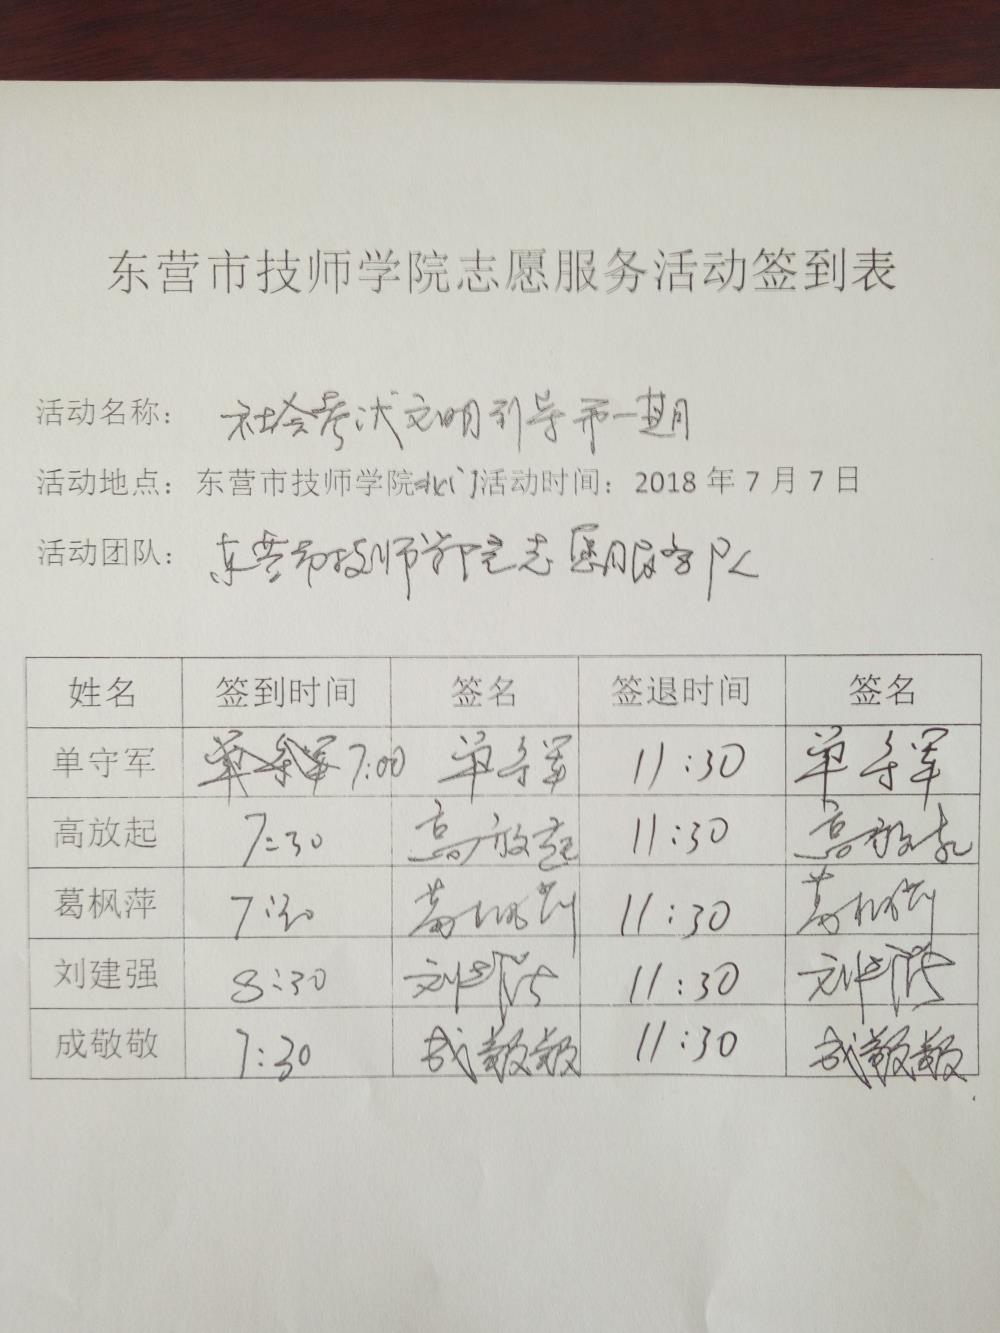 东营市技师学院志愿服务活动签到表
活动名称： 社会考试文明引导第一期
活动地点：东营市技师学院北门活动时间：2018年7月7日
活动团队： 东营市技师学院志愿服务队
姓名 签到时间 签名 签退时间 签名
单守军 7:00 单守军 11:30 单守军
高放起 7:30 高放起 11:30 高放起
葛枫萍 7:30 葛枫萍 11:30 葛枫萍
刘建强 8:30 刘建强 11:30 刘建强
成敬敬 7:30 成敬敬 11:30 成敬敬